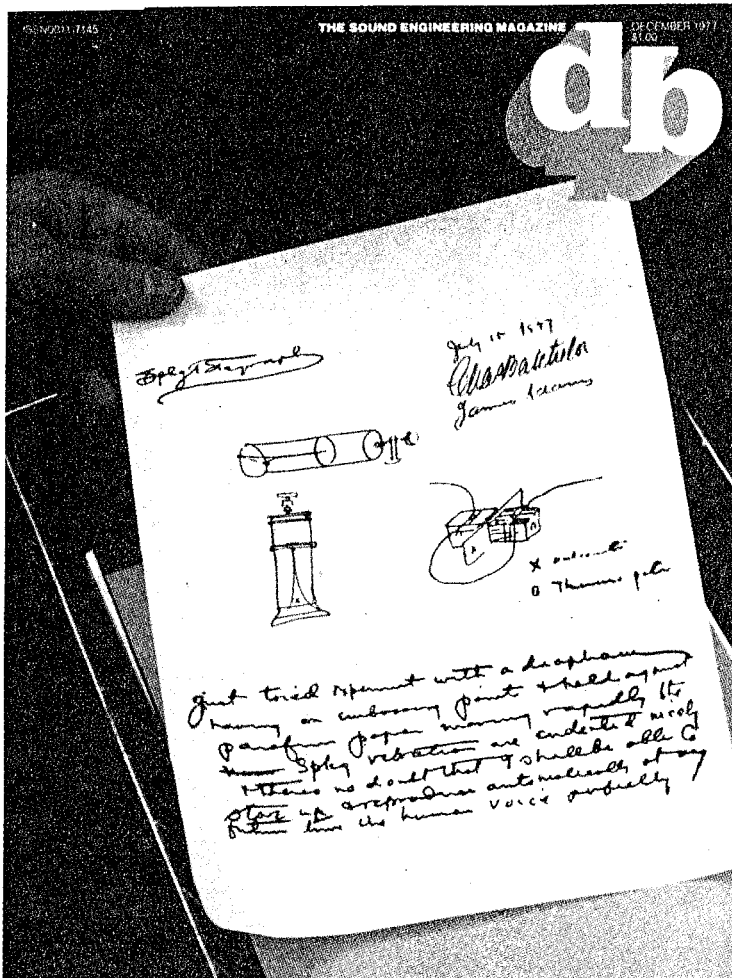 ISSN 0011-7145
THE SOUND ENGINEERING MAGAZINE
DECEMBER 1977
$1.00
db
Spkg Telegraph
July 18 1877
Chas Batchelor
James Adams
X
O Thermo
Just tried experiment with a diaphragm
having an embossing point & held against
parafin paper moving rapidly the
Spkg vibrations are indented nicely
& theres no doubt that I shall be able to
store up & reproduce automatically at any
future time the human voice perfectly